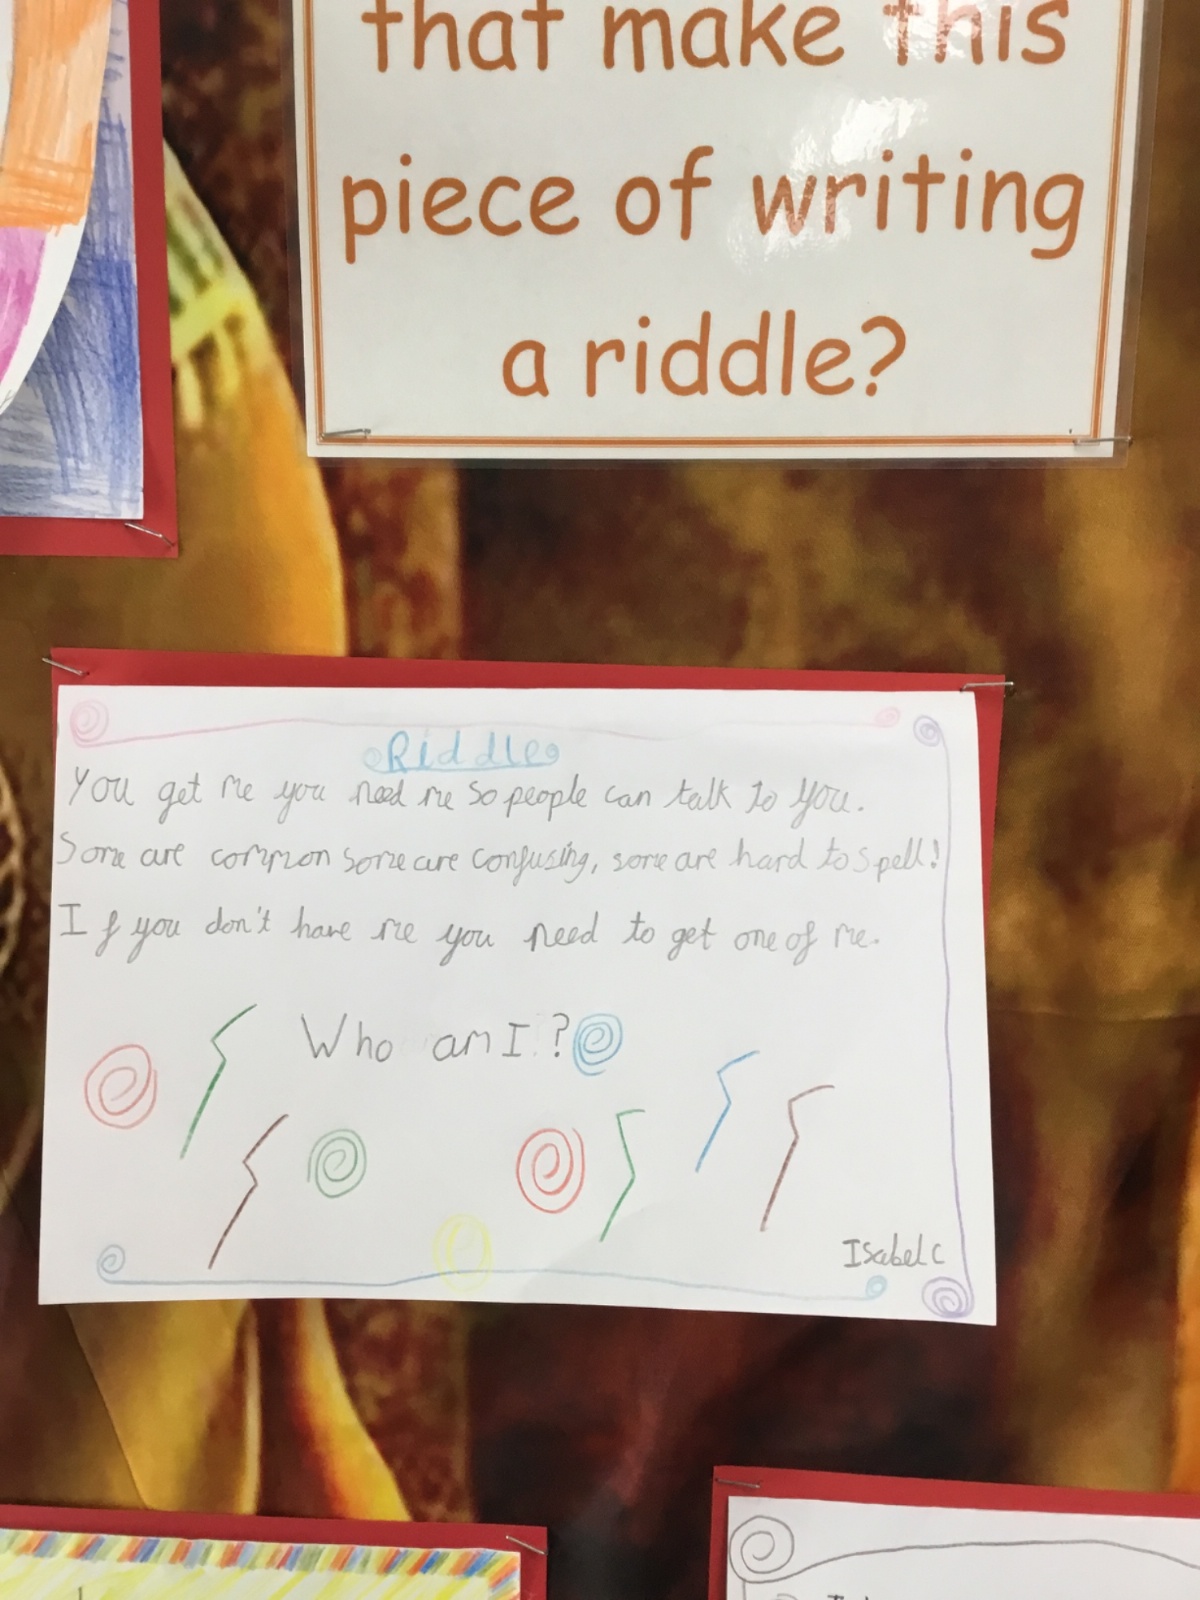 that make this
piece of writing
a riddle?
Riddle
You get me you need me so people can talk to you.
Some are common some are confusing, some are hard to spell!
If you don't have me you need to get one of me.
Who am I?
Isabel C